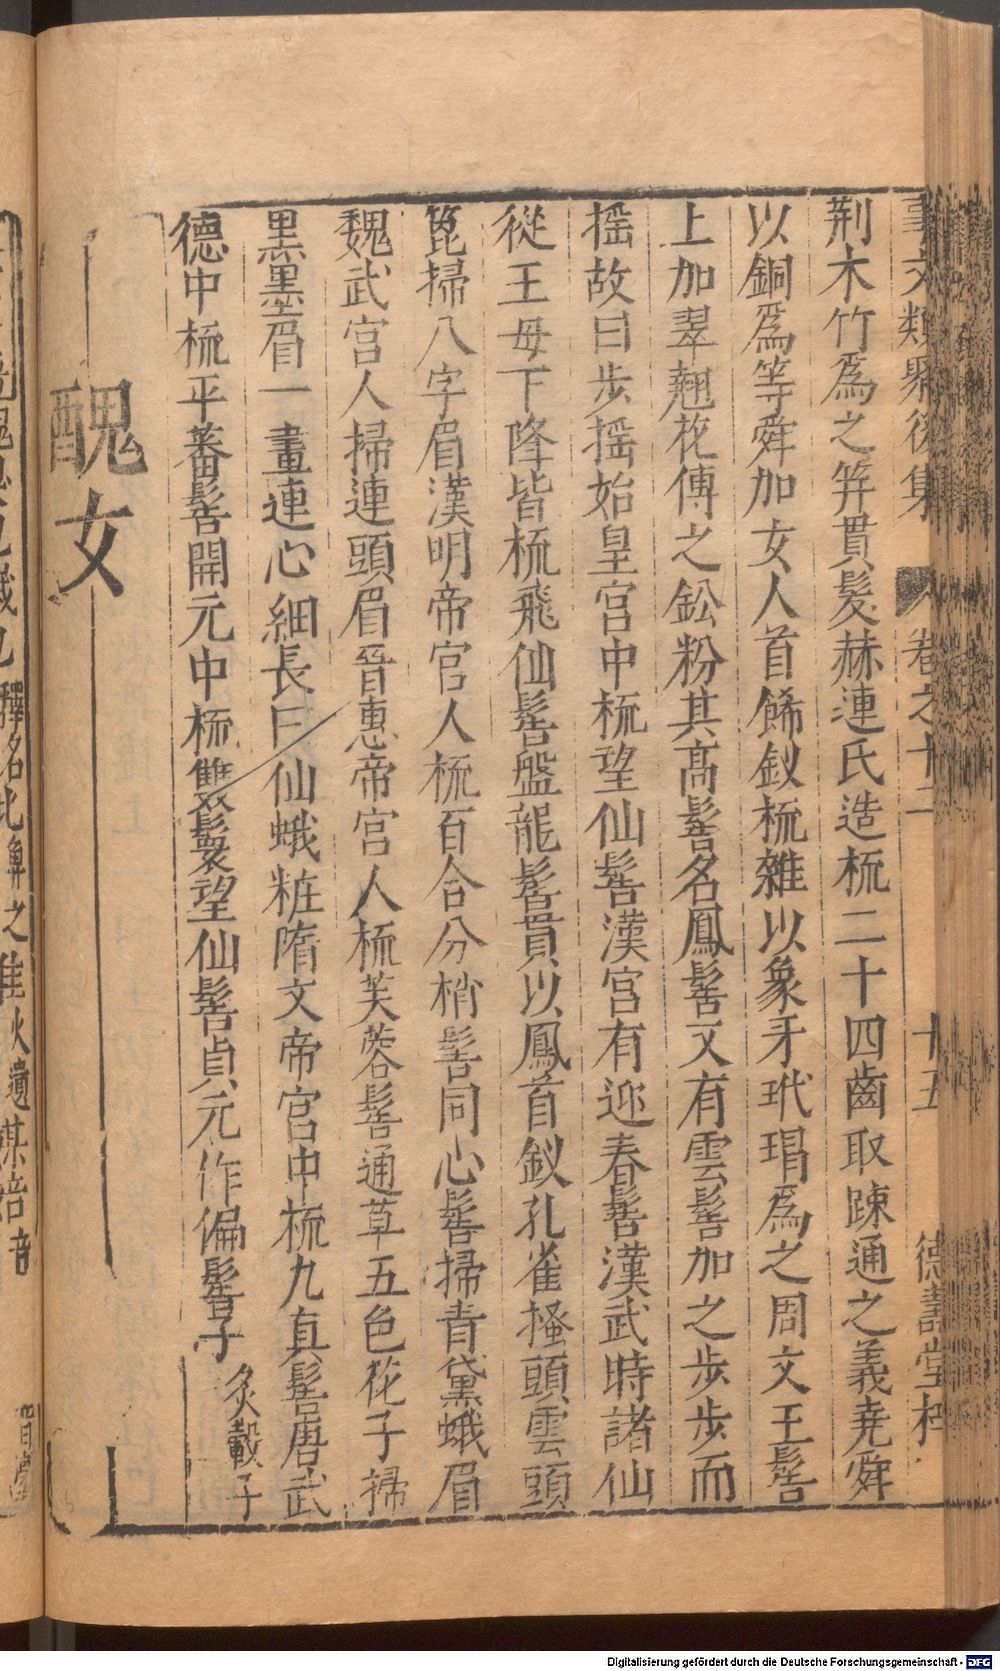 事文類聚後集 卷之十二 十五 德壽堂梓
荆木竹爲之笄貫髮赫連氏造梳二十四齒取踈通之義堯舜
以銅爲等舜加女人首餙釵梳雜以象牙玳瑁爲之周文王髻
上加翠翹花傅之鈆粉其髙髻名鳳髻又有雲髻加之步步而
揺故曰步揺始皇宫中梳望仙髻漢宫有迎春髻漢武時諸仙
從王母下降皆梳飛仙髻盤龍髻貫以鳳首釵孔雀搔頭雲頭
箆掃八字眉漢明帝宫人梳百合分梢髻同心髻掃青黛蛾眉
魏武宫人掃連頭眉晉惠帝宫人梳芙蓉髻通草五色花子掃
黑墨眉一畫連心細長曰仙蛾粧隋文帝宫中梳九真髻唐武
德中梳平蕃髻開元中梳雙鬟望仙髻貞元作偏髻子 炙轂子
醜女
釋名
Digitalisierung gefördert durch die Deutsche Forschungsgemeinschaft - DFG